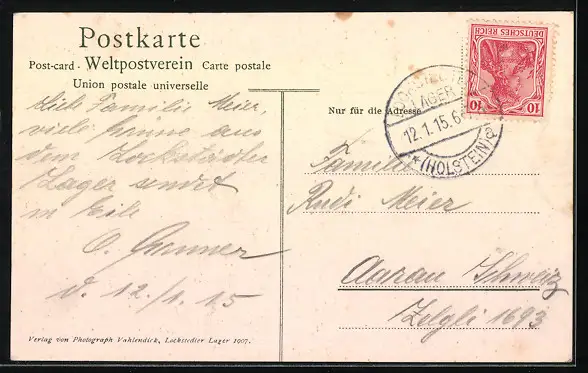 Postkarte
Post-card - Weltpostverein Carte postale
Union postale universelle
Liebe Familie Meier,
viele Grüsse aus
dem Lockstädter
Lager sendet
in Eile
O.
d. 12./1. 15
Verlag von Photograph Vahlendick, Lockstedter Lager 1907.
Nur für die Adresse
Familie
Rudi Meier
Aarau Schweiz
Zelgli 1693
DEUTSCHES REICH
10 10
LAGER
12.1.15.6
*(HOLSTEIN)